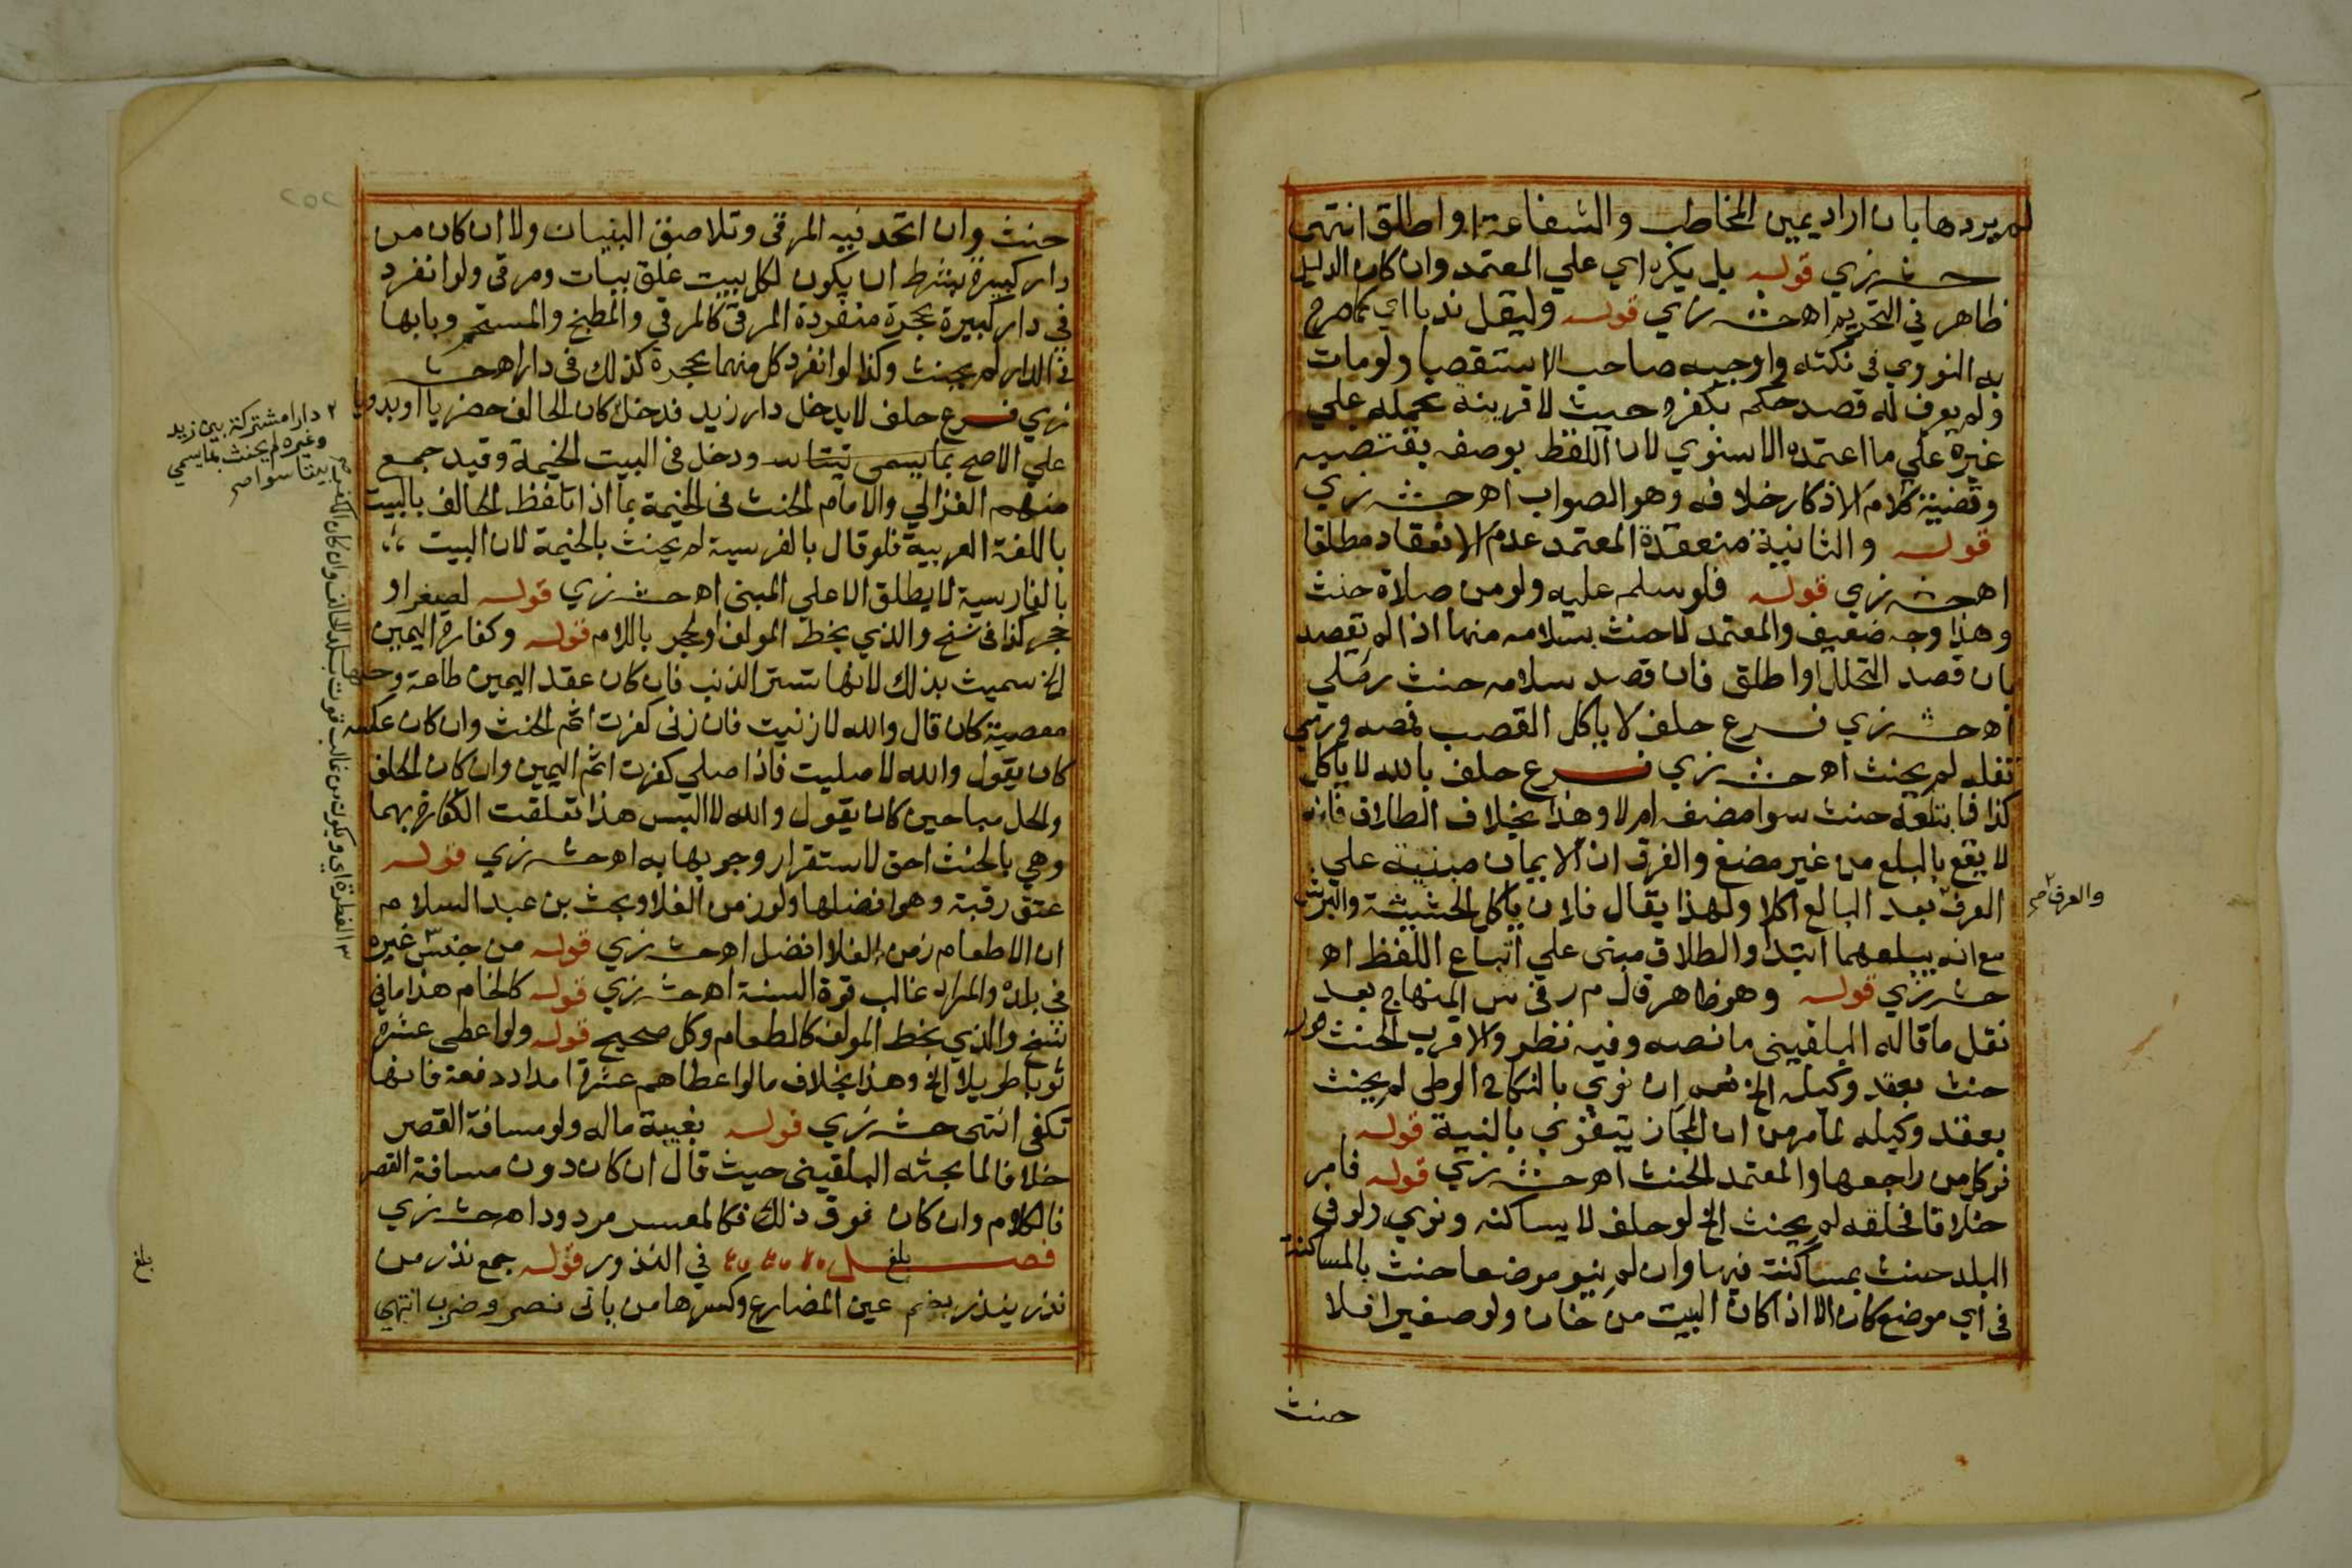 لم يردها بان اراد يمين المخاطب والشفاعة او اطلق انتهى
ح ش زي قوله بل يكره اي علي المعتمد وان كان الدليل
ظاهر في التحريم اه ح ش زي قوله وليقل ندبا اي كما صرح
به النووي في نكته واوجبه صاحب الاستقصا ولومات
ولم يعرف له قصد حكم بكفره حيث لا قرينة تحمله علي
غيره علي ما اعتمده الاسنوي لان اللفظ بوضعه يقتضيه
وقضية كلام الاذكار خلافه وهو الصواب اه ح ش زي
قوله والثانية منعقدة المعتمد عدم الانعقاد مطلقا
اه ح ش زي قوله فلو سلم عليه ولو من صلاة حنث
وهذا وجه ضعيف والمعتمد لا حنث بسلامه منها اذا لم يقصد
بان قصد التحلل او اطلق فان قصد سلامه حنث رملي
اه ح ش زي فرع حلف لا ياكل القصب فمصه ورمي
تفله لم يحنث اه ح ش زي فرع حلف بالله لا ياكل
كذا فابتلعه حنث سوا مضغه ام لا وهذا بخلاف الطلاق فانه
لا يقع بالبلع من غير مضغ والفرق ان الايمان مبنية علي
العرف بعد البالع اكلا ولهذا يقال فلان ياكل الحشيشة والبرش
مع انه يبلعهما ابتدا والطلاق مبنى علي اتباع اللفظ اه
ح ش زي قوله وهو ظاهر قال م ر في ش المنهاج بعد
نقل ما قاله البلقيني ما نصه وفيه نظر والاقرب الحنث
حنث بعقد وكيله الخ نعم ان نوي بالنكاح الوطى لم يحنث
بعقد وكيله لما مر من ان المجاز يتقوي بالنية قوله
فوكل من راجعها والمعتمد الحنث اه ح ش زي قوله فامر
حلاقا فحلقه لم يحنث الخ لو حلف لا يساكنه ونوي ولو في
البلد حنث بمساكنته فيها وان لم ينو موضعا حنث بالمساكنة
فى اي موضع كان الا اذا كان البيت من خان ولو صغيرا فلا
حنث
والعرف صح
حنث وان اتحد فيه المرقى وتلاصق البنيان ولا ان كان من
دار كبيرة بشرط ان يكون لكل بيت غلق بباب ومرقى ولو انفرد
فى دار كبيرة بحجرة منفردة المرقى كالمرقى والمطبخ والمستحم وبابها
فى الدار لم يحنث وكذا لو انفرد كل منهما بحجرة كذلك فى دار اه ح ش
زي فرع حلف لا يدخل دار زيد فدخل كان الحالف حضريا او بدويا
علي الاصح بما يسمى بيتا ودخل فى البيت الخيمة وقيد جمع
منهم الغزالي والامام الحنث فى الخيمة بما اذا تلفظ الحالف بالبيت
باللغة العربية فلو قال بالفرسية لم يحنث بالخيمة لان البيت
بالفارسية لا يطلق الا علي المبنى اه ح ش زي قوله لصغر او
حجر كذا فى نسخ والذي بخط المولف او لحجر باللام قوله وكفارة اليمين
الخ سميت بذلك لانها تستر الذنب فان كان عقد اليمين طاعة وحلها
معصية كان قال والله لا زنيت فان زنى كفرت اثم الحنث وان كان عكسه
كان يقول والله لا صليت فاذا صلي كفرت اثم اليمين وان كان الحلف
والحل مباحين كان يقول والله لا البس هذا تعلقت الكفارة بهما
وهي بالحنث احق لاستقرار وجوبها به اه ح ش زي قوله
عتق رقبة وهو افضلها ولو زمن الغلا وبحث بن عبد السلام
ان الاطعام زمن الغلا افضل اه ح ش زي قوله من جنس غيره
فى بلده والمراد غالب قوة السنة اه ح ش زي قوله كالخام هذا ما في
نسخ والذي بخط المولف كالمطعام وكل صحيح قوله ولو اعطى عشرة
ثوبا طويلا الخ وهذا بخلاف ما لو اعطاهم عشرة امداد دفعة فانها
تكفى انتهى ح ش زي قوله بغيبة ماله ولو مسافة القصر
خلافا لما بحثه البلقينى حيث قال ان كان دون مسافة القصر
فالكلام وان كان فوق ذلك فكالمعسر مردود اه ح ش زي
فصل بلغ في النذور قوله جمع نذر من
نذر ينذر بضم عين المضارع وكسرها من بابى نصر وضرب انتهي
دارا مشتركة بين زيد
وغيره لم يحنث بما يسمي
بيتا سوا صح
بلغ